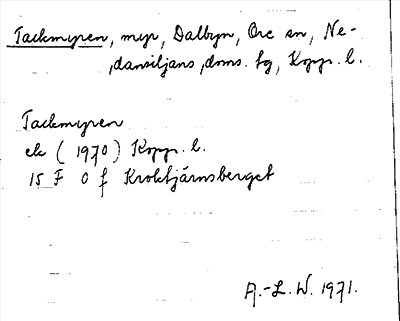 Tackmyren, myr, Dalbyn, Ore sn, Ne-
dansiljans, doms. hg, Kopp. l.
Tackmyren
ek (1970) Kopp. l.
15 F 0 f Kroktjärnsberget
A.-L. W. 1971.